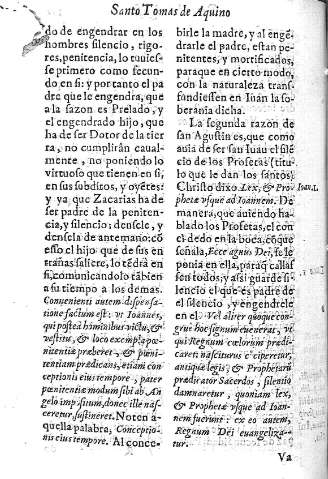 Santo Tomas de Aquino
do de engendrar en los
hombres silencio, rigo-
res, penitencia, lo tuuies-
se primero como fecun-
do en si: y por tanto el pa
dre que le engendra, que
a la sazon es Prelado, y
el engendrado hijo, que
ha de ser Dotor de la tier
ra, no cumplirán caual-
mente, no poniendo lo
virtuoso que tienen en si,
en sus subditos, y oyẽtes:
y ya que Zacarias ha de
ser padre de la peniten-
cia, y silencio: densele, y
densela de antemano: cõ
esso el hijo que de sus en
trañas saliere, lo tẽdrà en
si, comunicandolo tãbien
a su tiempo a los demas.
Conuenienti autem dispensa-
tione factum est: vt Ioannes,
qui postea hominibus victu, &
vestitu, & loco exempla pœ-
nitentiæ præberet, & pœni-
tentiam prædicans, etiam con
ceptionis eius tempore, pater
pœnitentiæ modum sibi ab An
gelo impositum, donec ille nas-
ceretur, sustineret. Noten a-
quella palabra, Conceptio-
nis eius tempore. Al conce-
birle la madre, y al engẽ-
drarle el padre, estan pe-
nitentes, y mortificados,
paraque en cierto modo,
con la naturaleza trans-
fundiessen en Iuan la so-
berania dicha.
La segunda razon de
san Agustin es, que como
auia de ser san Iuan el silẽ
cio de los Profetas (titu-
lo que le dan los santos)
Christo dixo Lex, & Pro-
phetæ vsque ad Ioannem. De
manera, que auiendo ha-
blado los Profetas, el con
el dedo en la boca, cõ que
señala, Ecce agnus Dei, se le
ponia en ella, paraq̃ calla-
ssen todos; y assi guarde si-
lencio el que es padre de
el silencio, y engendrele
en el. Vel aliter quoque con-
grue hoc signum euenerat, vt
qui Regnum cœlorum prædi-
careti nasciturus cõciperetur,
antiquæ legis, & Prophetarũ
prædicator Sacerdos, silentio
damnaretur, quoniam lex,
& Prophetæ vsque ad Ioan-
nem fuerunt: ex eo autem,
Regnum Dei euangeliza-
tur.
Ioan. 1.
Va